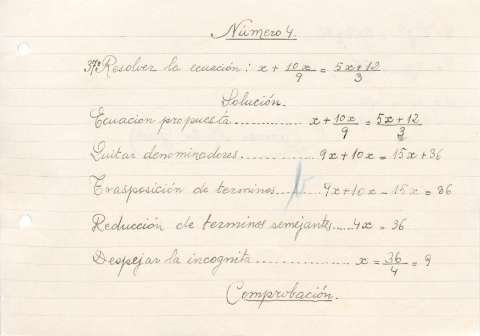 Número 4.
37ª Resolver la ecuación: x + 10x/9 = 5x+12/3
Solución.
Ecuacion propuesta............... x + 10x/9 = 5x+12/3
Quitar denominadores.............. 9x + 10x = 15x + 36
Trasposición de terminos...... 9x + 10x - 15x = 36
Reducción de terminos semejantes..... 4x = 36
Despejar la incognita................. x = 36/4 = 9
Comprobación.